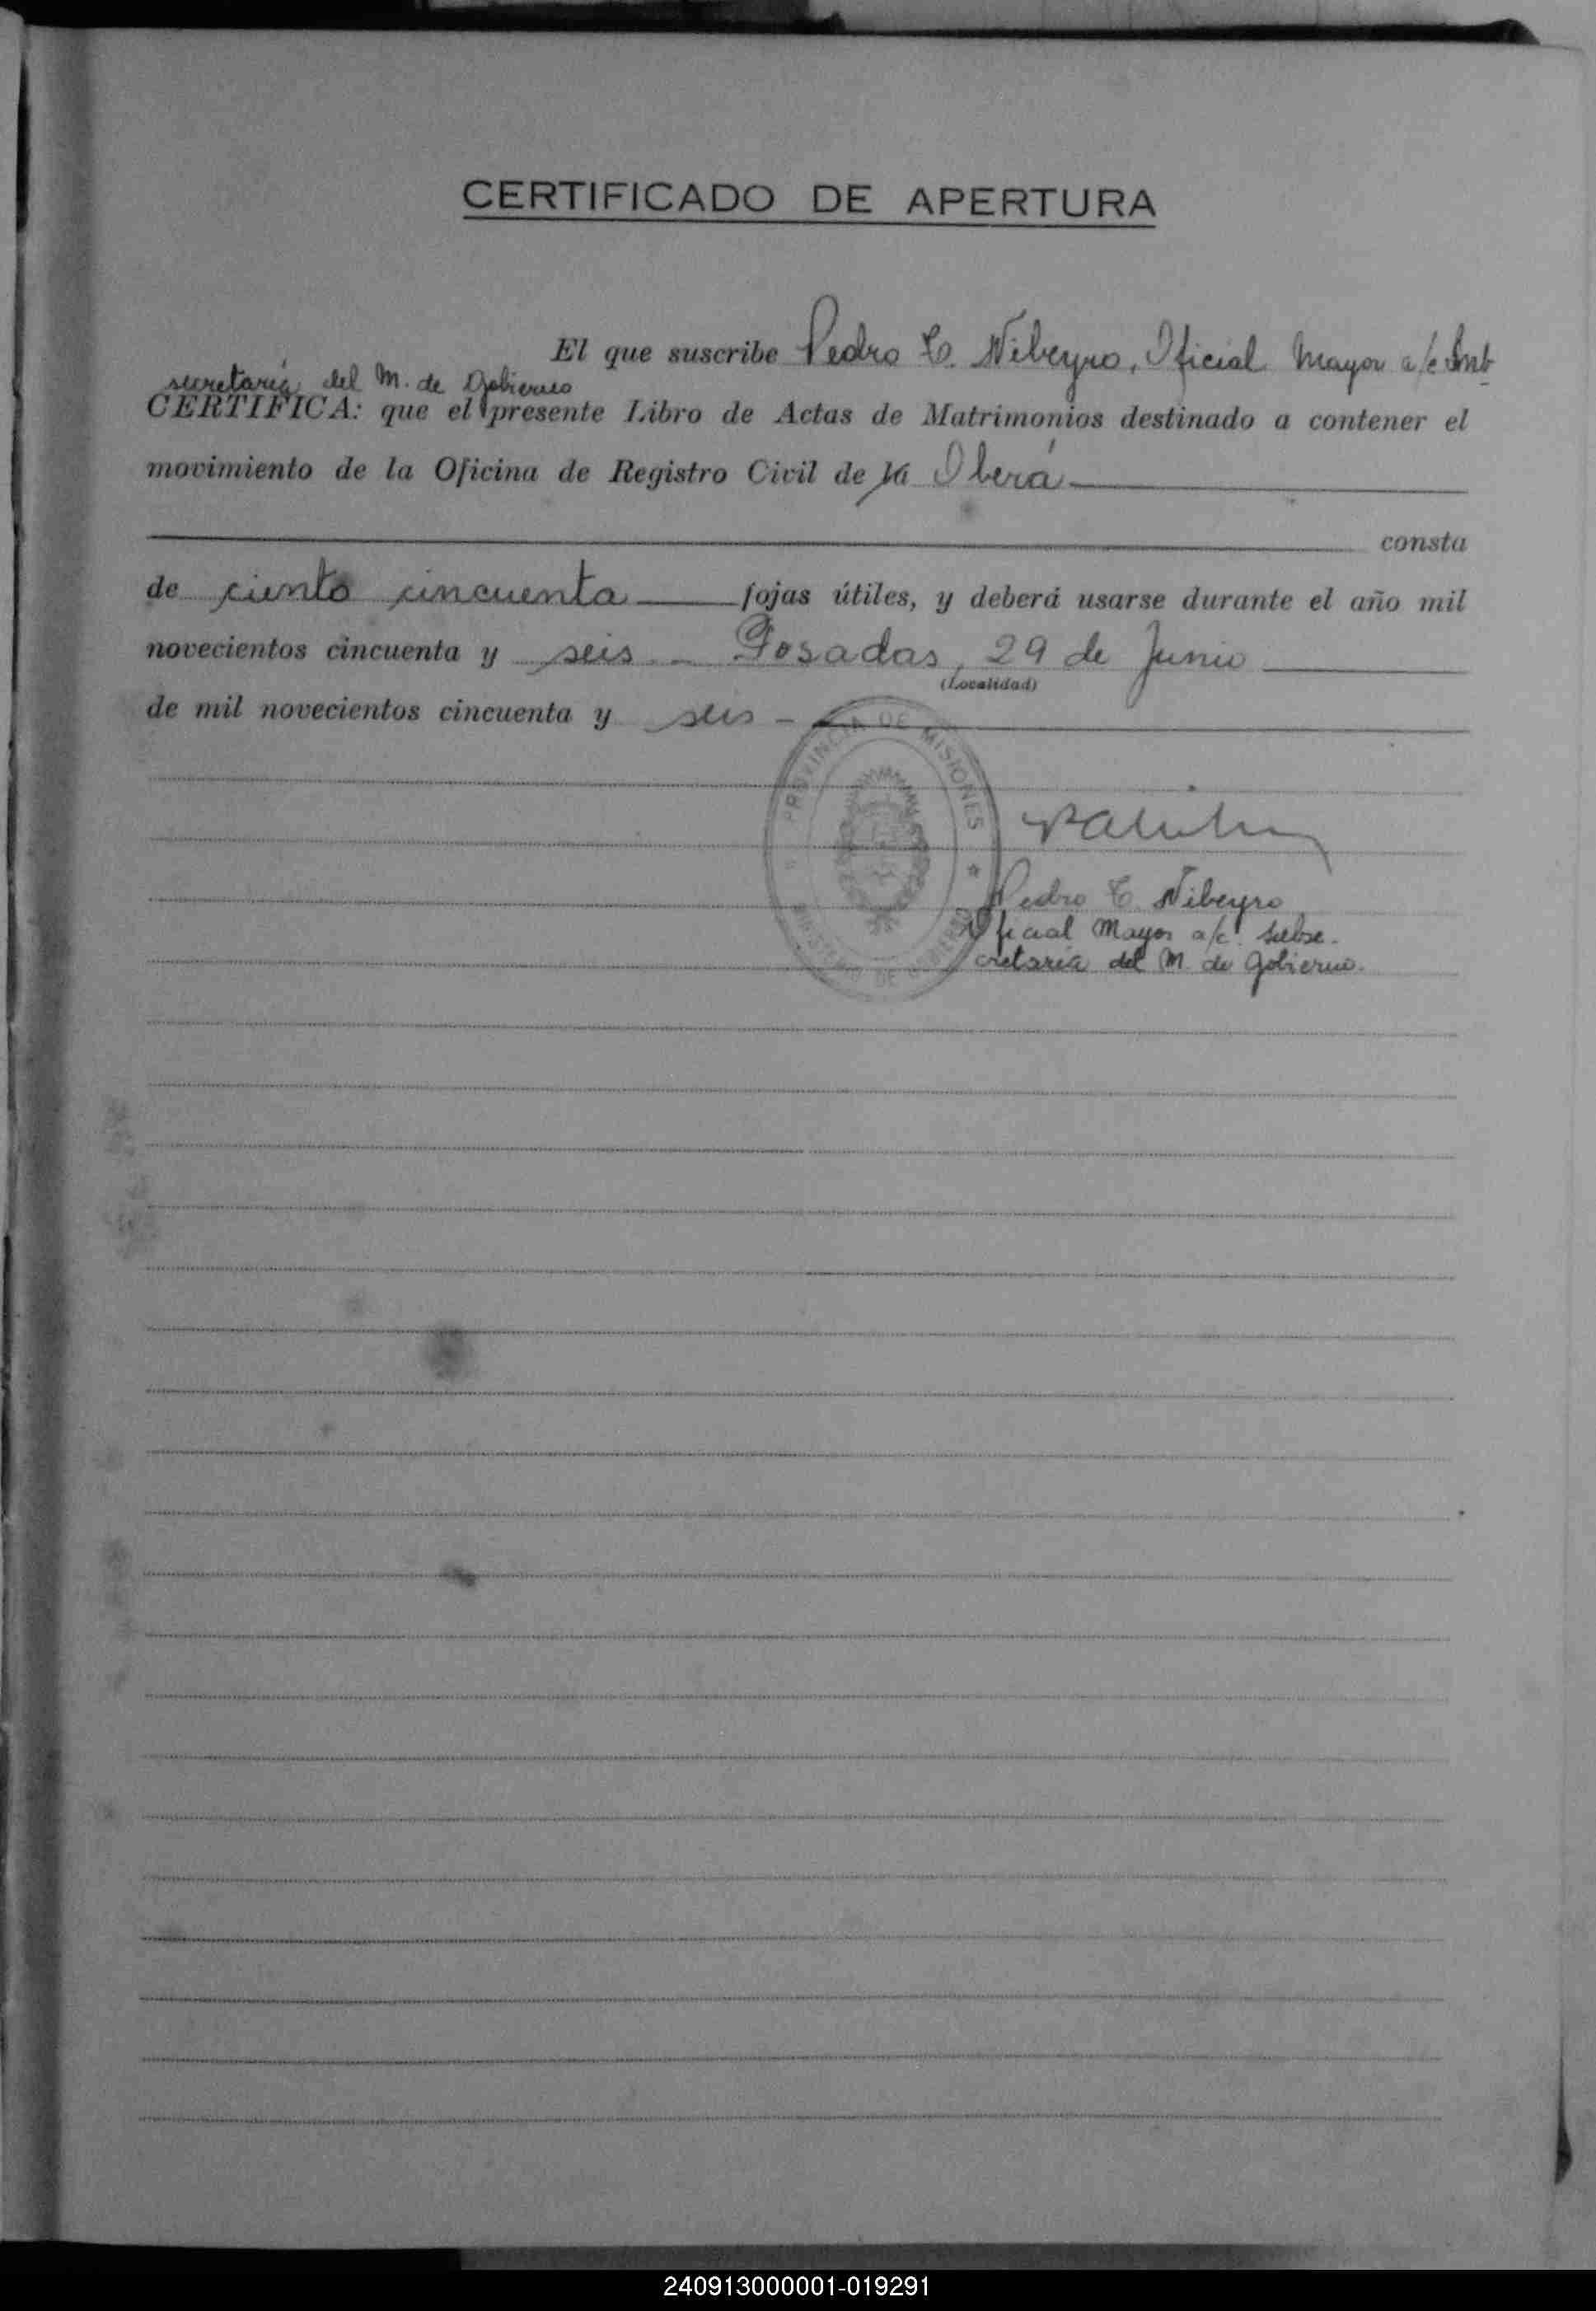 CERTIFICADO DE APERTURA
El que suscribe Pedro C. Nibeyro, Oficial Mayor a/c Sub
secretaría del M. de Gobierno
CERTIFICA: que el presente Libro de Actas de Matrimonios destinado a contener el
movimiento de la Oficina de Registro Civil de la Oberá
consta
de ciento cincuenta fojas útiles, y deberá usarse durante el año mil
novecientos cincuenta y seis. - Posadas, 29 de Junio
(Localidad)
de mil novecientos cincuenta y seis -
PROVINCIA DE MISIONES
MINISTERIO DE GOBIERNO
Pedro C Nibeyro
Oficial Mayor a/c. Subse-
cretaría del M. de Gobierno.
240913000001-019291